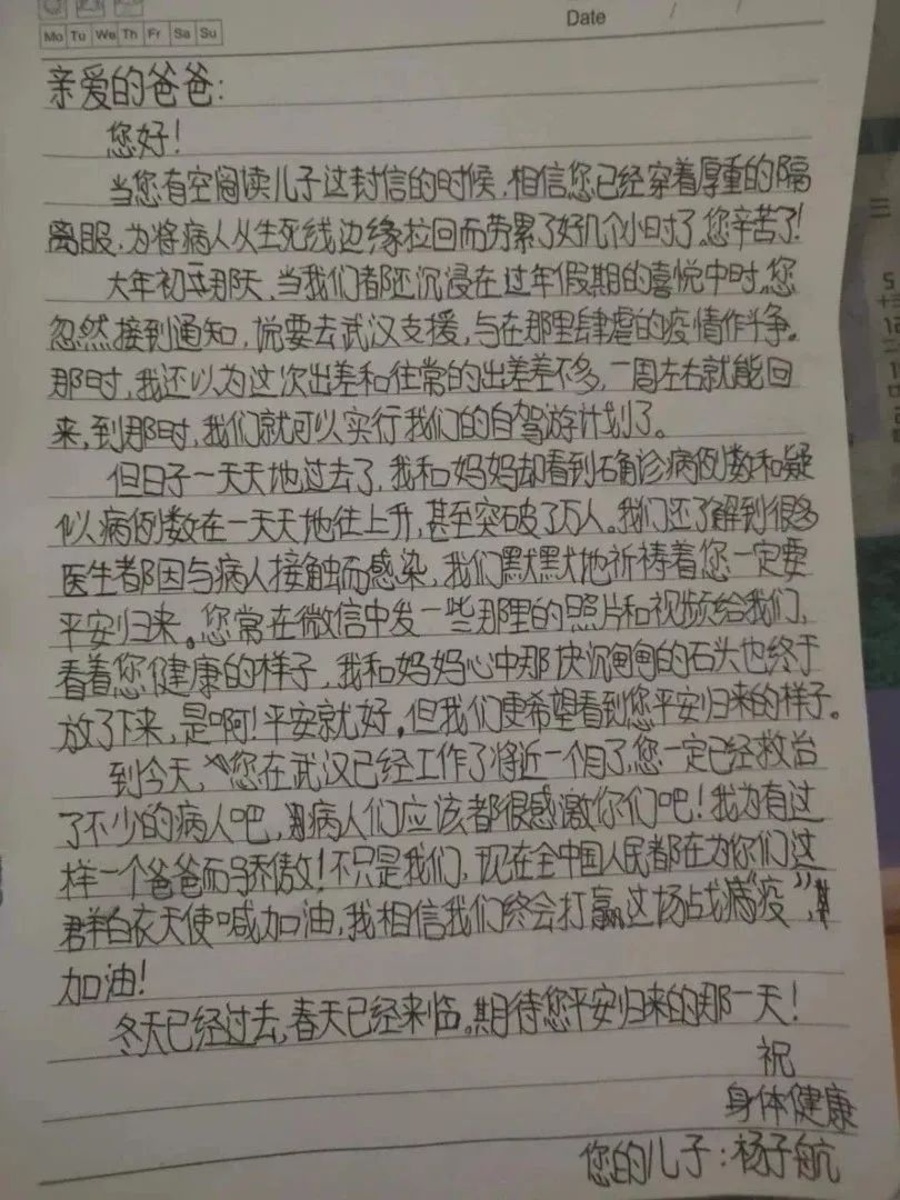 Date / /
Mo Tu We Th Fr Sa Su
亲爱的爸爸:
您好!
当您有空阅读儿子这封信的时候,相信您已经穿着厚重的隔
离服,为将病人从生死线边缘拉回而劳累了好几个小时了。您辛苦了!
大年初五那天,当我们都还沉浸在过年假期的喜悦中时,您
忽然接到通知,说要去武汉支援,与在那里肆虐的疫情作斗争。
那时,我还以为这次出差和往常的出差差不多,一周左右就能回
来,到那时,我们就可以实行我们的自驾游计划了。
但日子一天天地过去了,我和妈妈却看到确诊病例数和疑
似病例数在一天天地往上升,甚至突破了万人。我们还了解到很多
医生都因与病人接触而感染,我们默默地祈祷着您一定要
平安归来。您常在微信中发一些那里的照片和视频给我们,
看着您健康的样子,我和妈妈心中那块沉甸甸的石头也终于
放了下来,是啊!平安就好,但我们更希望看到您平安归来的样子。
到今天,您在武汉已经工作了将近一个月了,您一定已经救治
了不少的病人吧,病人们应该都很感激你们吧!我为有过
样一个爸爸而骄傲!不只是我们,现在全中国人民都在为你们这
群白衣天使喊加油,我相信我们终会打赢这场战“疫”,
加油!
冬天已经过去,春天已经来临。期待您平安归来的那一天!
祝
身体健康
您的儿子:杨子航